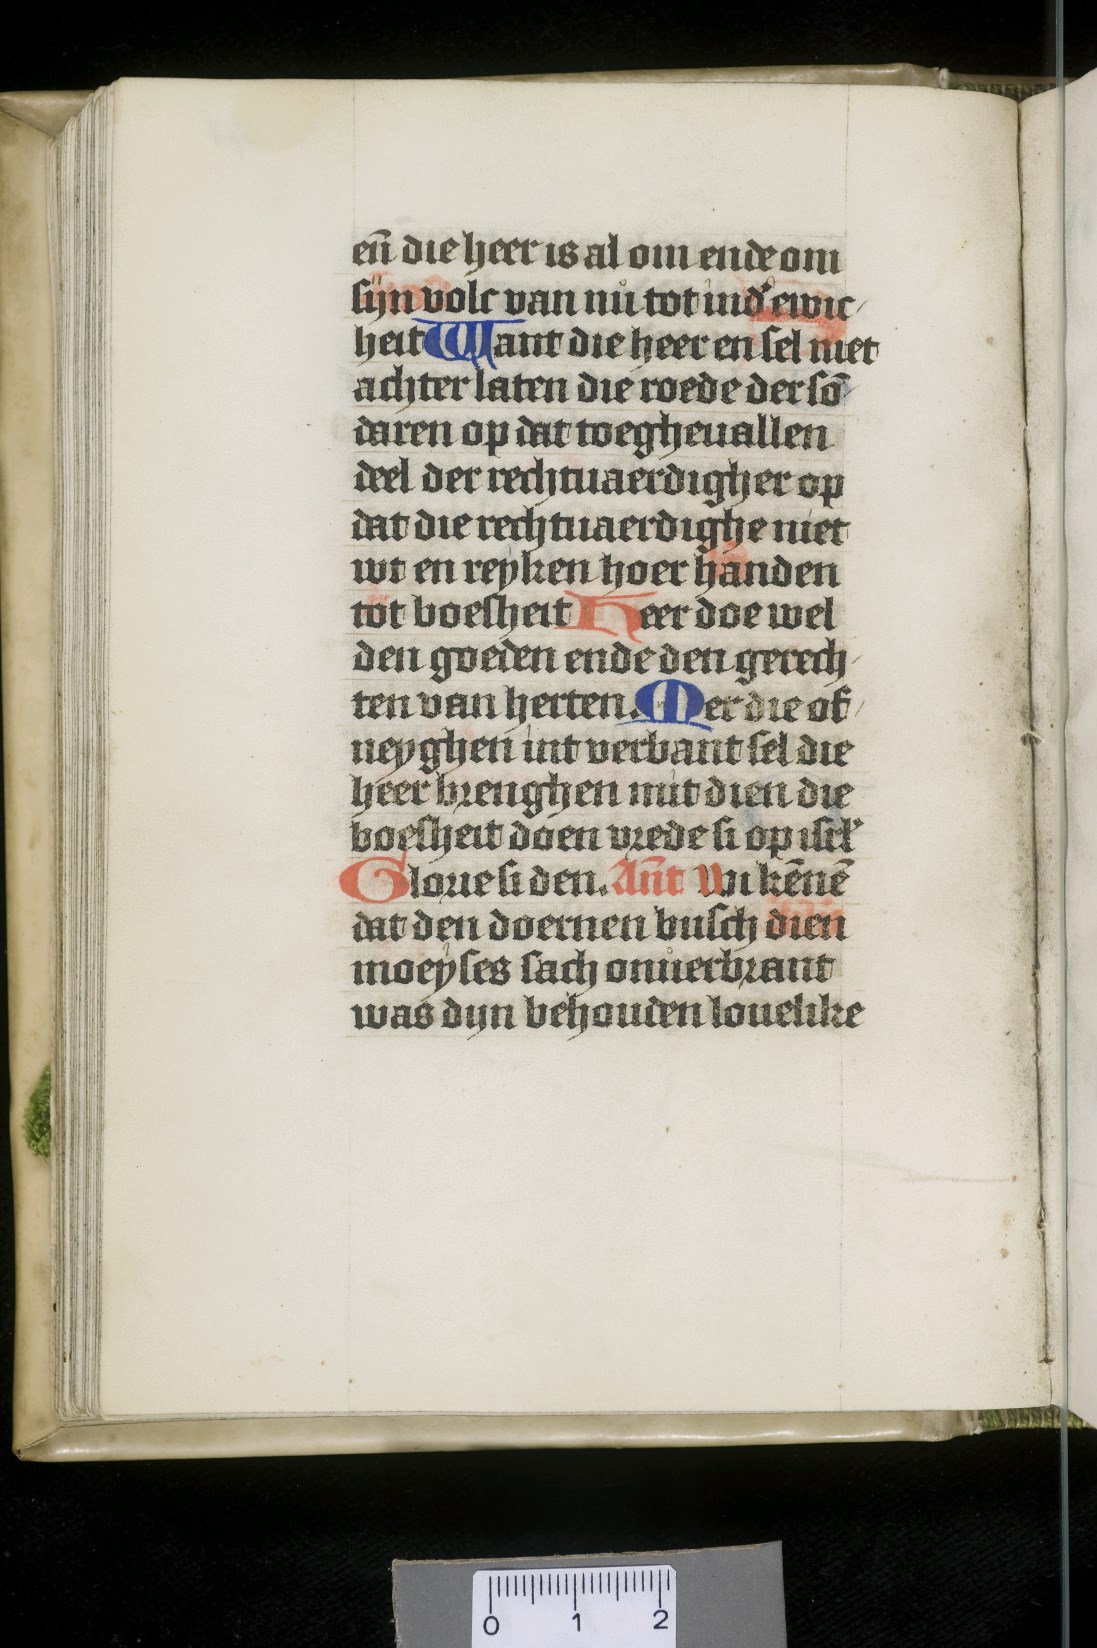 en̄ die heer is al om ende om
sijn volc van nu tot ind' ewic
heit Want die heer en sel niet
achter laten die roede der sō
daren op dat toegheuallen
deel der rechtuaerdigher op
dat die rechtuaerdighe niet
wt en reyken hoer handen
tot boesheit Heer doe wel
den goeden ende den gerech
ten van herten. Mer die of
neyghen int verbant sel die
heer brenghen mit dien die
boesheit doen vrede si op isrl'
Glorie si den. An̄t Wi kēnē
dat den doernen busch dien
moeyses sach onuerbrant
was dijn behouden louelike
0 1 2